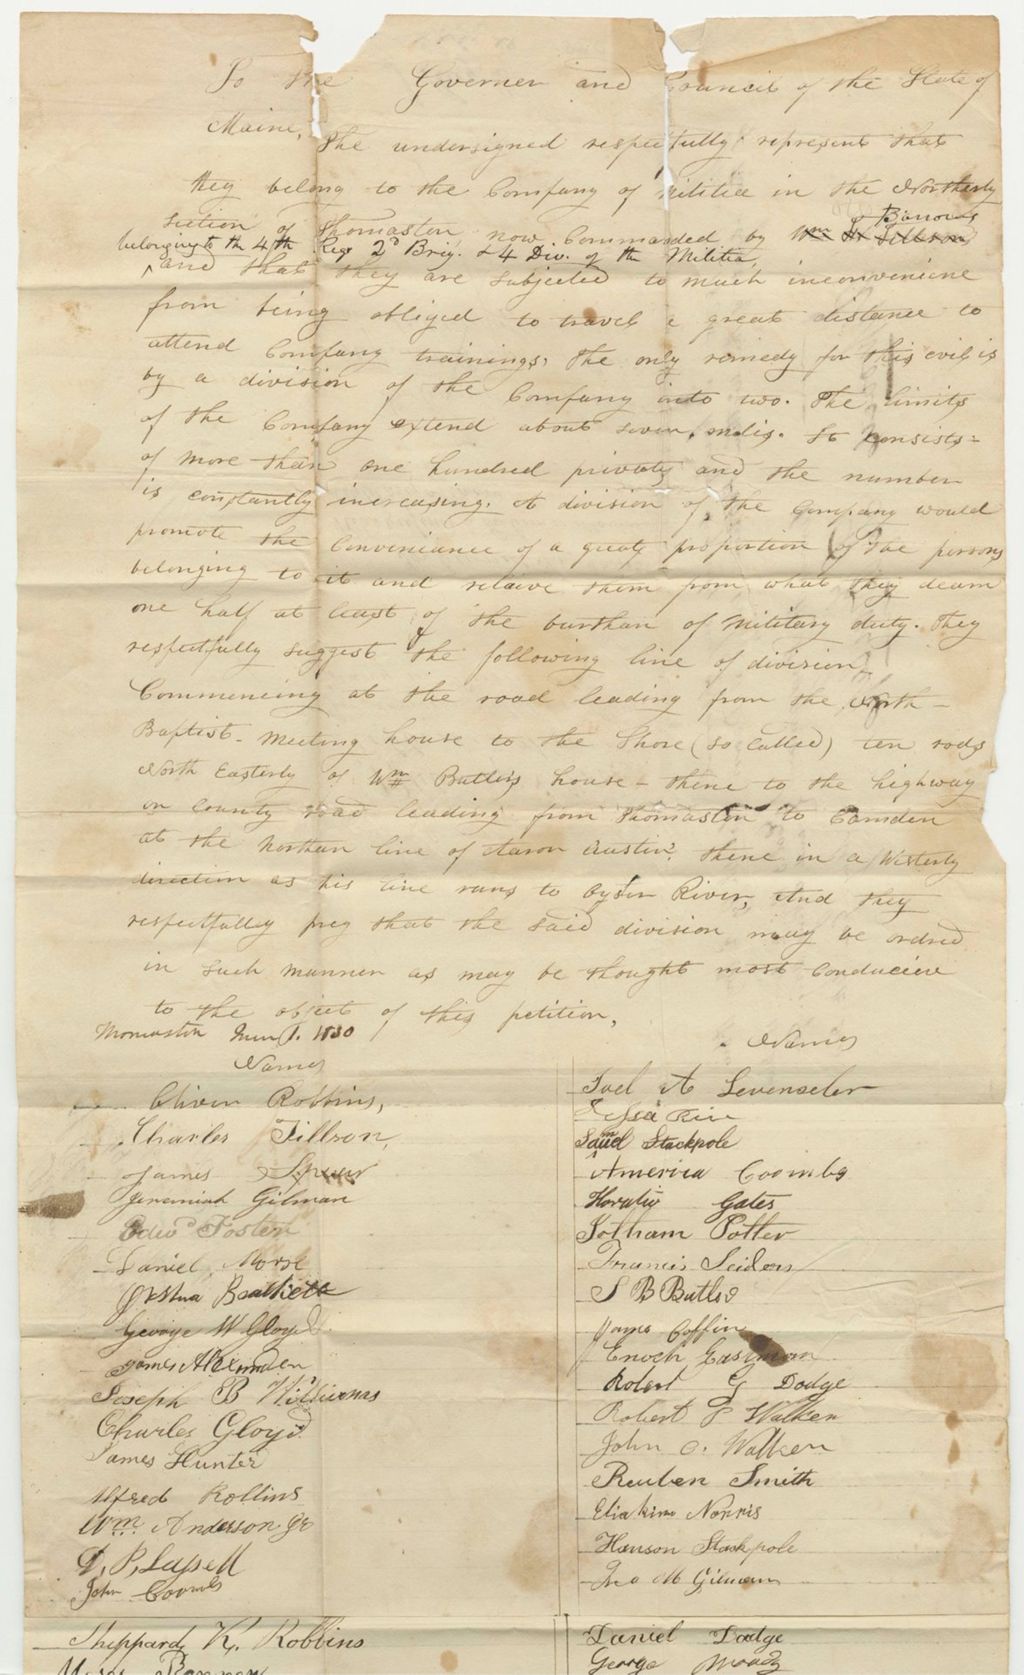 To the Governer and Council of the State of
Maine,
The undersigned respectfully represent that
they belong to the Company of Militia in the Northerly
section of Thomaston now Commanded by Wm H Tillson
J Barrows
belonging to the 4th Reg. 2d Brig. & 4 Div. of the Militia,
and that they are subjected to much inconvenience
from being obliged to travel a great distance to
attend Company trainings, the only remidy for this evil is
by a division of the Company into two. The limits
of the Company extend about seven miles. It consists
of more than one hundred privates and the number
is constantly increasing. A division of the Company would
promote the Conveniance of a greate proportion of the persons
belonging to it and releive them from what they deam
one half at least of the burthan of Military duty. They
respectfully suggest the following line of division
Commencing at the road leading from the North
Baptist Meeting house to the Shore (so called) ten rods
North Easterly of Wm Butlers house - thence to the highway
or County road leading from Thomaston to Camden
at the northan line of Aaron Austin, thence in a Westerly
direction as his line runs to Oyster River, And they
respectfully prey that the said division may be ordred
in such manner as may be thought most Conducive
to the object of this petition,
Thomaston 1. 1830
Names
Names
Oliver Robbins,
Charles Tillson,
James Spear
Jeremiah Gilman
Edwd Foster
Daniel Morse
Joshua Bartlett
George W Gloyd
James Alexander
Joseph B Williams
Charles Gloyd
James Hunter
Alfred Rollins
Wm Anderson Jr
D. P. Lassell
John Coombs
Sheppard K. Robbins
Joel A Levenseler
Rice
Samel Stackpole
America Coombs
Horatio Gates
Jotham Potter
Francis Seiders
S B Butler
James Coffin
Enoch Eastman
Robert G Dodge
Robert Walker
John C. Walker
Reuben Smith
Eliakim Norris
Hanson Stackpole
Jno M Gilman
Daniel Dodge
George Moody